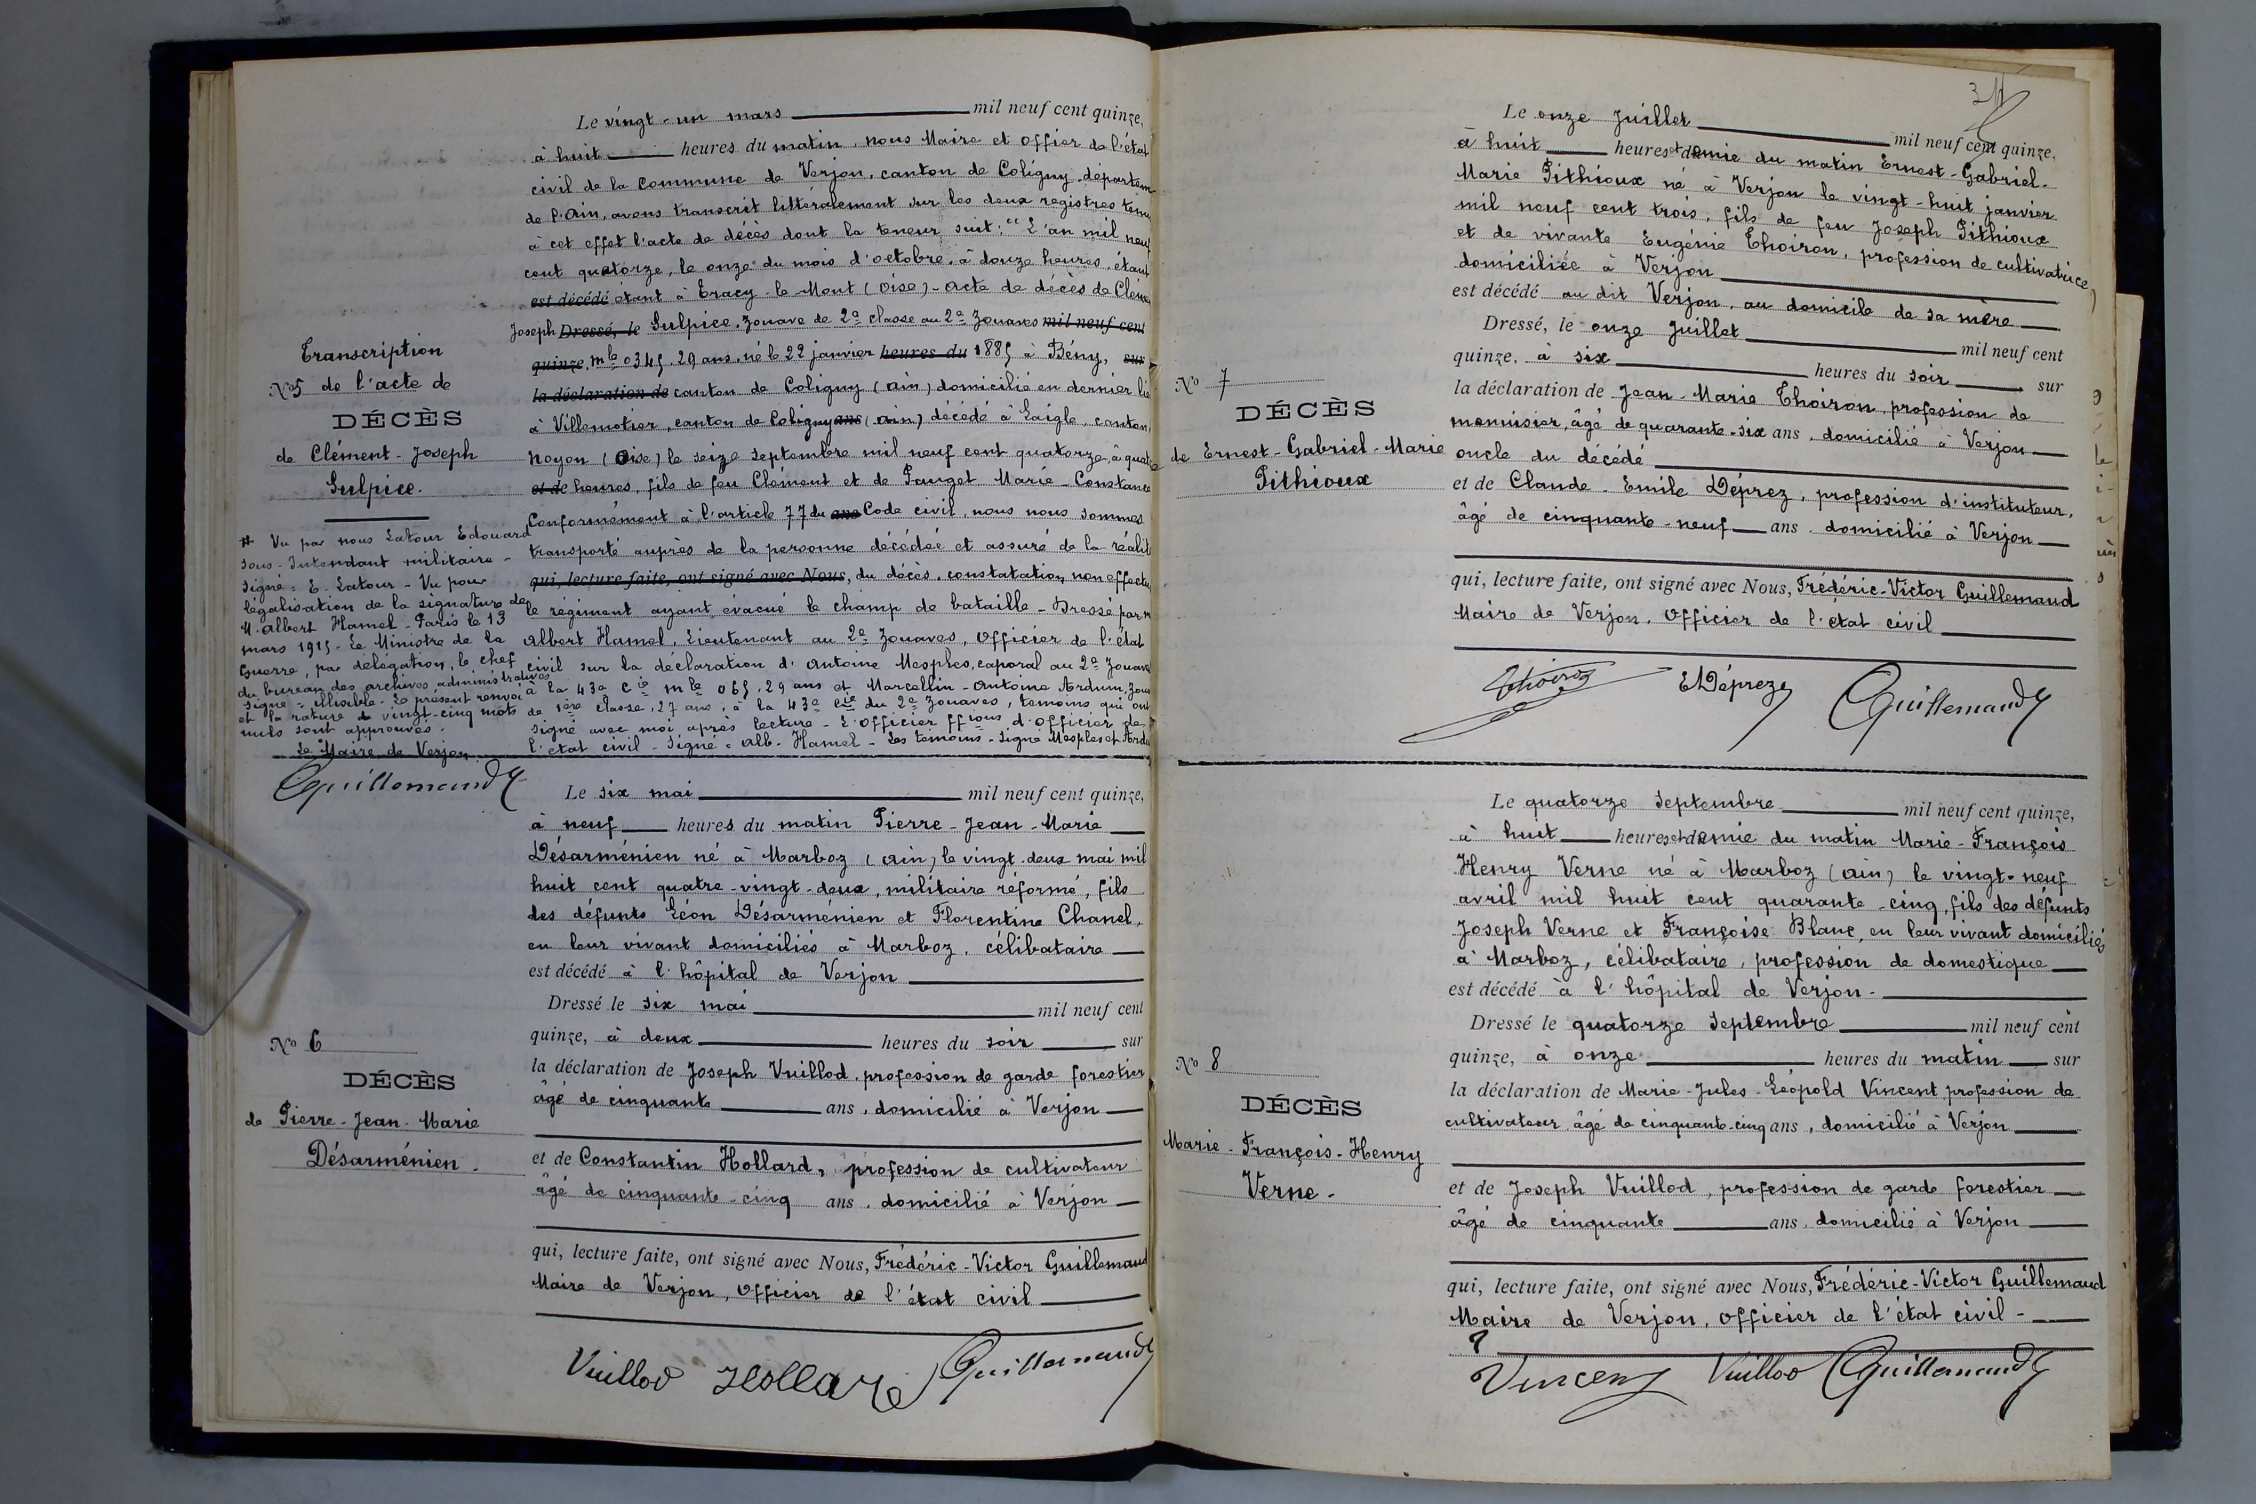 Le vingt-un mars mil neuf cent quinze,
à huit heures du matin, nous Maire et officier de l'état
civil de la Commune de Verjon, canton de Coligny, départem
de l'Ain, avons transcrit littéralement sur les deux registres tenus
à cet effet l'acte de décès dont la teneur suit: "L'an mil neuf
cent quatorze, le onze du mois d'octobre, à douze heures, étant
est décédé étant à Tracy-le-Mont (Oise) - Acte de décès de Clément
Joseph Dressé, le Sulpice, Zouave de 2e classe au 2e Zouaves mil neuf cent
quinze, mle 0345, 29 ans, né le 22 janvier heures du 1885 à Bény, sur
la déclaration de canton de Coligny (Ain) domicilié en dernier lie
à Villemotier, canton de Coligny ans (Ain), décédé à Laigle, canton
Noyon (Oise) le seize septembre mil neuf cent quatorze, à quatre
et de heures, fils de feu Clément et de Pauget Marie-Constance
Conformément à l'article 77 du ans Code civil, nous nous sommes
transporté auprès de la personne décédée et assuré de la réalit
qui, lecture faite, ont signé avec Nous, du décès, constatation non effectu
le régiment ayant évacué le champ de bataille - Dressé par n
Albert Hamel, Lieutenant au 2e Zouaves, Officier de l'état
civil sur la déclaration d'Antoine Mesples, caporal au 2e Zouave
à la 43e Cie mle 065, 29 ans et Marcellin-Antoine Ardum, Zou
de 1ère classe, 27 ans, à la 43e Cie du 2e Zouaves, témoins qui ont
signé avec moi après lecture - L'officier ffions d'officier de
l'état civil - Signé = Alb. Hamel - Les témoins - Signé Mesples et Ardu
Transcription
No 5 de l'acte de
DÉCÈS
de Clément-Joseph
Sulpice.
# Vu par nous Latour Edouard
Sous-Intendant militaire -
Signé = E. Latour - Vu pour
légalisation de la signature de
M. Albert Hamel - Paris le 13
mars 1915 - Le Ministre de la
Guerre, par délégation, le chef
du bureau des archives administratives
Signé = illisible - Le présent renvoi
et la rature de vingt-cinq mots
nuls sont approuvés.
Le Maire de Verjon
Guillemaud
Le six mai mil neuf cent quinze,
à neuf heures du matin Pierre-Jean-Marie
Désarménien né à Marboz (Ain) le vingt-deux mai mil
huit cent quatre-vingt-deux, militaire réformé, fils
des défunts Léon Désarménien et Florentine Chanel,
en leur vivant domiciliés à Marboz, célibataire
est décédé à l'hôpital de Verjon
Dressé le six mai mil neuf cent
quinze, à deux heures du soir sur
la déclaration de Joseph Vuillod, profession de garde forestier
âgé de cinquante ans, domicilié à Verjon
et de Constantin Hollard, profession de cultivateur
âgé de cinquante-cinq ans, domicilié à Verjon
qui, lecture faite, ont signé avec Nous, Frédéric-Victor Guillemaud
Maire de Verjon, Officier de l'état civil
Vuillod Hollard Guillemaud
No 6
DÉCÈS
de Pierre-Jean-Marie
Désarménien.
Le onze Juillet mil neuf cent quinze,
à huit heures et demie du matin Ernest-Gabriel-
Marie Pithioux né à Verjon le vingt-huit janvier
mil neuf cent trois, fils de feu Joseph Pithioux
et de vivante Eugénie Thoiron, profession de cultivatrice,
domiciliée à Verjon
est décédé au dit Verjon, au domicile de sa mère
Dressé, le onze Juillet mil neuf cent
quinze, à six heures du soir sur
la déclaration de Jean-Marie Thoiron, profession de
menuisier, âgé de quarante-six ans, domicilié à Verjon
oncle du décédé
et de Claude-Emile Déprez, profession d'instituteur,
âgé de cinquante-neuf ans domicilié à Verjon
qui, lecture faite, ont signé avec Nous, Frédéric-Victor Guillemaud
Maire de Verjon, Officier de l'état civil
Thoiron EDéprez Guillemaud
No 7
DÉCÈS
de Ernest-Gabriel-Marie
Pithioux
Le quatorze Septembre mil neuf cent quinze,
à huit heures et demie du matin Marie-François
Henry Verne né à Marboz (Ain) le vingt-neuf
avril mil huit cent quarante-cinq, fils des défunts
Joseph Verne et Françoise Blanc, en leur vivant domiciliés
à Marboz, célibataire, profession de domestique
est décédé à l'hôpital de Verjon -
Dressé le quatorze Septembre mil neuf cent
quinze, à onze heures du matin sur
la déclaration de Marie-Jules-Léopold Vincent profession de
cultivateur, âgé de cinquante-cinq ans, domicilié à Verjon
et de Joseph Vuillod, profession de garde forestier
âgé de cinquante ans, domicilié à Verjon
qui, lecture faite, ont signé avec Nous, Frédéric-Victor Guillemaud
Maire de Verjon, officier de l'état civil -
Vincent Vuillod Guillemaud
No 8
DÉCÈS
Marie-François-Henry
Verne -